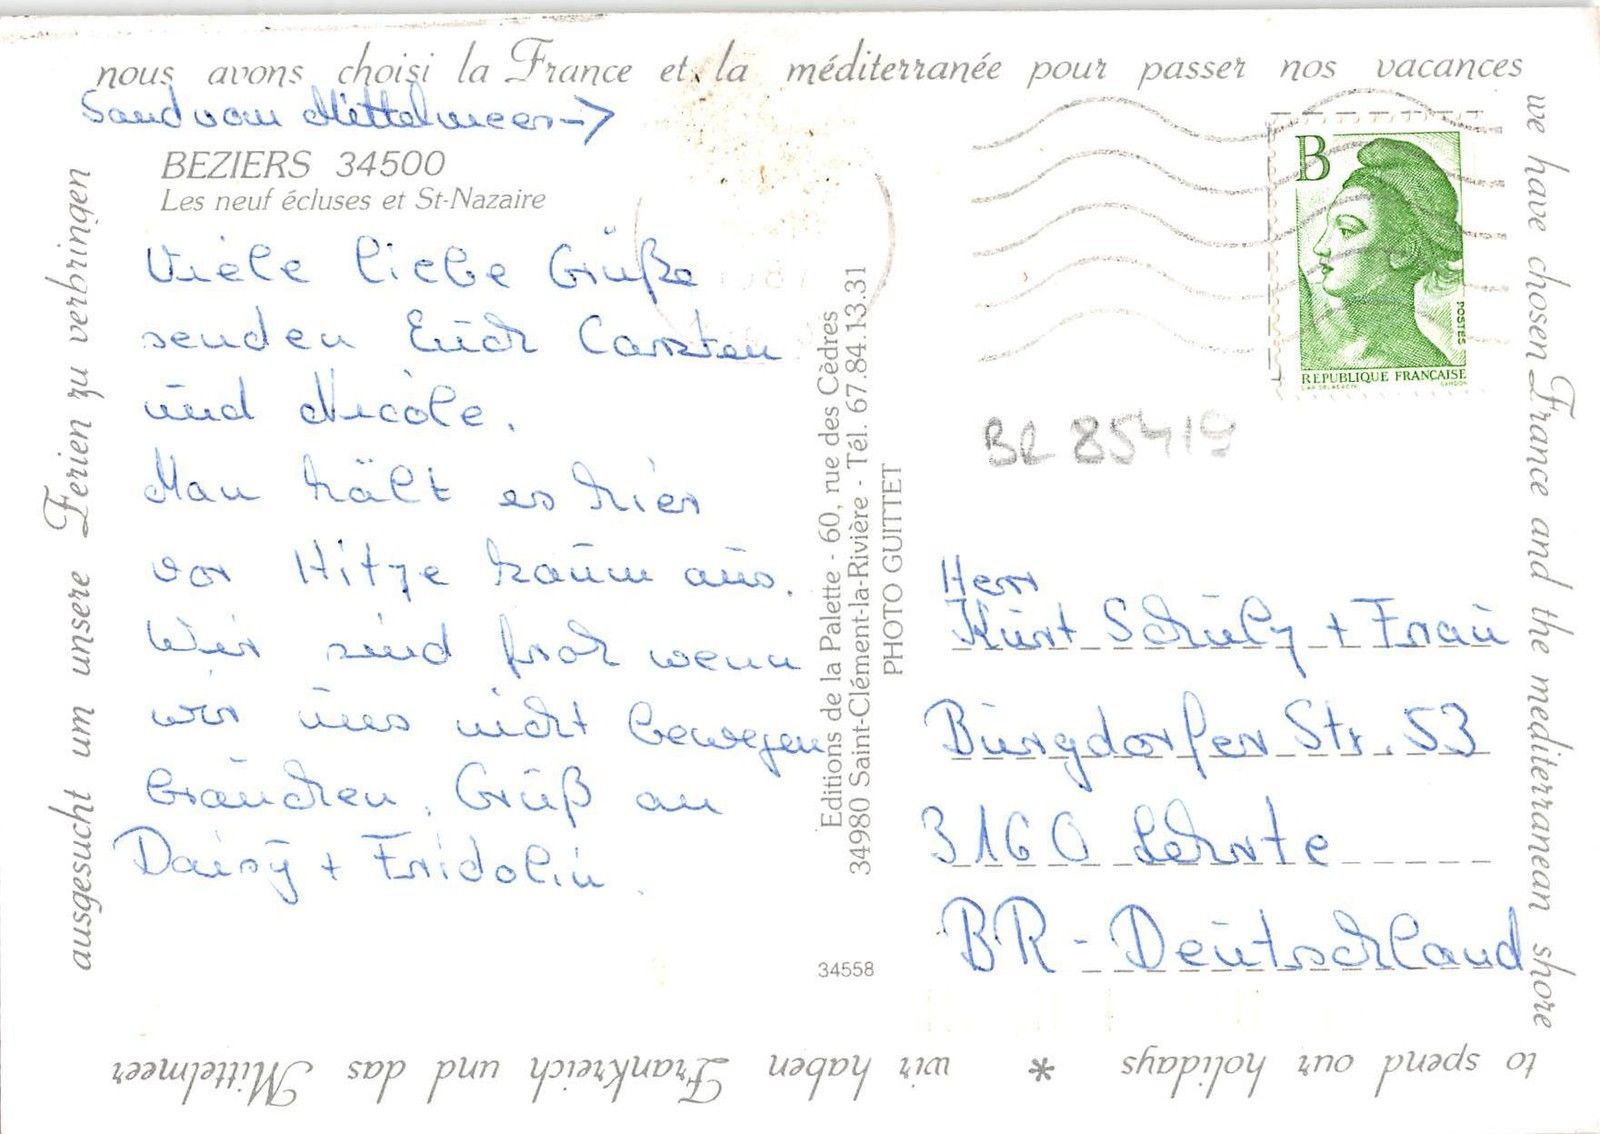 nous avons choisi la France et la méditerranée pour passer nos vacances
we have chosen France and the mediterranean shore
to spend our holidays * wir haben Frankreich und das Mittelmeer
ausgesucht um unsere Ferien zu verbringen
Sand vom Mittelmeer →
BEZIERS 34500
Les neuf écluses et St-Nazaire
Viele liebe Grüße
senden Euch Carsten
und Nicole.
Man hält es hier
vor Hitze kaum aus.
Wir sind froh wenn
wir uns nicht bewegen
brauchen. Gruß an
Daisy + Fridolin.
Editions de la Palette - 60, rue des Cèdres
34980 Saint-Clément-la-Rivière - Tél. 67.84.13.31
PHOTO GUITTET
34558
B
POSTES
REPUBLIQUE FRANÇAISE
GANDON
BR 85419
Herr
Kurt Schulz + Frau
Burgdorfer Str. 53
3160 Lehrte
BR - Deutschland